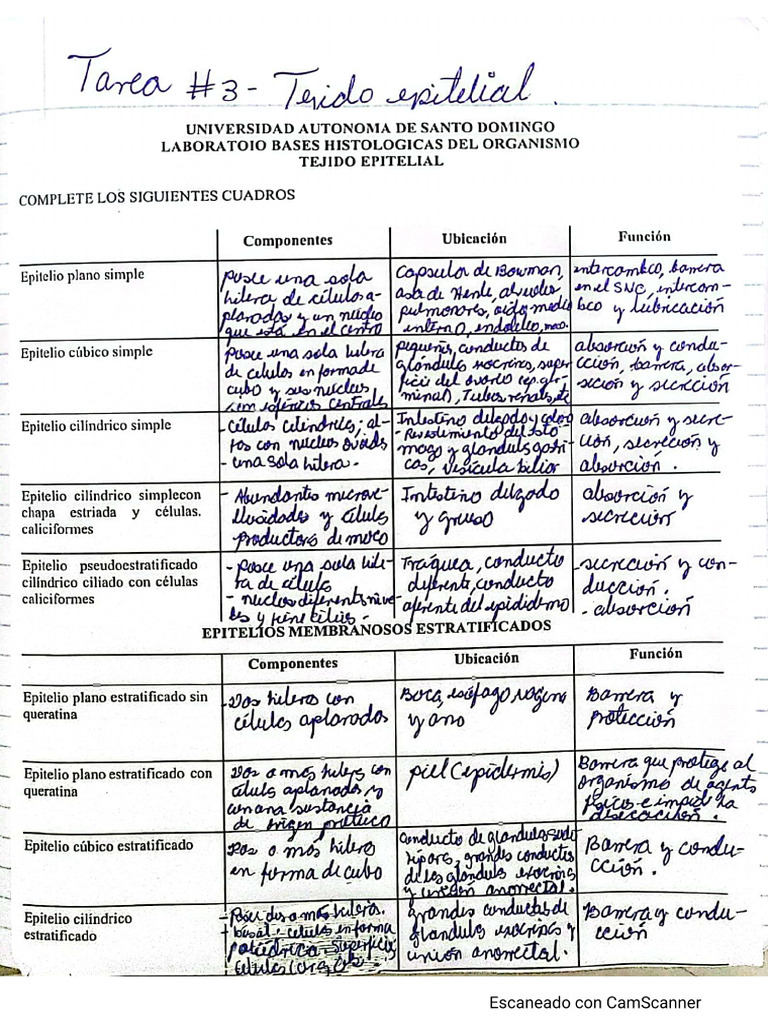 Tarea #3 - Tejido epitelial.
UNIVERSIDAD AUTONOMA DE SANTO DOMINGO
LABORATOIO BASES HISTOLOGICAS DEL ORGANISMO
TEJIDO EPITELIAL
COMPLETE LOS SIGUIENTES CUADROS
Componentes
Ubicación
Función
Epitelio plano simple
Posee una sola
hilera de células a-
planadas y un núcleo
que está en el centro
Capsula de Bowman,
asa de Henle, alveolos
pulmonares, oido medio
interno, endotelio,
intercambio, barrera
en el SNC, intercam-
bio y lubricación
Epitelio cúbico simple
Posee una sola hilera
de celulas en forma de
cubo y sus nucleos
son esfericos centrales
pequeños conductos de
glándulas exocrinas, super
ficie del ovario (ep. ger-
minal), Tubos renales,
absorción y condu-
cción, barrera, absor-
seción y secreción
Epitelio cilíndrico simple
- Células cilindricas; al-
tas con nucleos ovoides
- una sola hilera.
Intestino delgado y colon
- Revestimiento del esto
mago y glandulas gastri-
cas, vesicula biliar
absorción y secre-
ción, secreción y
absorción.
Epitelio cilíndrico simplecon
chapa estriada y células.
caliciformes
- Abundantes microve-
llosidades y células
productoras de moco
Intestino delgado
y grueso
absorción y
secreción
Epitelio pseudoestratificado
cilíndrico ciliado con células
caliciformes
- Posee una sola hile-
ra de células
- nucleos diferentes nive-
les y tiene cilios.
Tráquea, conducto
deferente, conducto
eferente del epididimo
- secreción y con-
ducción.
- absorción
EPITELIOS MEMBRANOSOS ESTRATIFICADOS
Componentes
Ubicación
Función
Epitelio plano estratificado sin
queratina
- Dos hileras con
células aplanadas
Boca, esófago vagina
y ano
Barrera y
protección
Epitelio plano estratificado con
queratina
Dos o más hileras con
células aplanadas y
con una sustancia
de origen
piel (epidermis)
Barrera que protege al
organismo de agents
fisicos e impide la
desecación.
Epitelio cúbico estratificado
Dos o más hileras
en forma de cubo
Conducto de glandulas sudo
ríparas, grandes conductos
de las glándulas exocrinas
y unión anorrectal.
Barrera y condu-
cción.
Epitelio cilíndrico
estratificado
- Posee dos o más hileras.
- basal: células en forma
poliédrica superficie
células
grandes conductos de
glandulas exocrinas y
unión anorrectal.
Barrera y condu-
cción
Escaneado con CamScanner